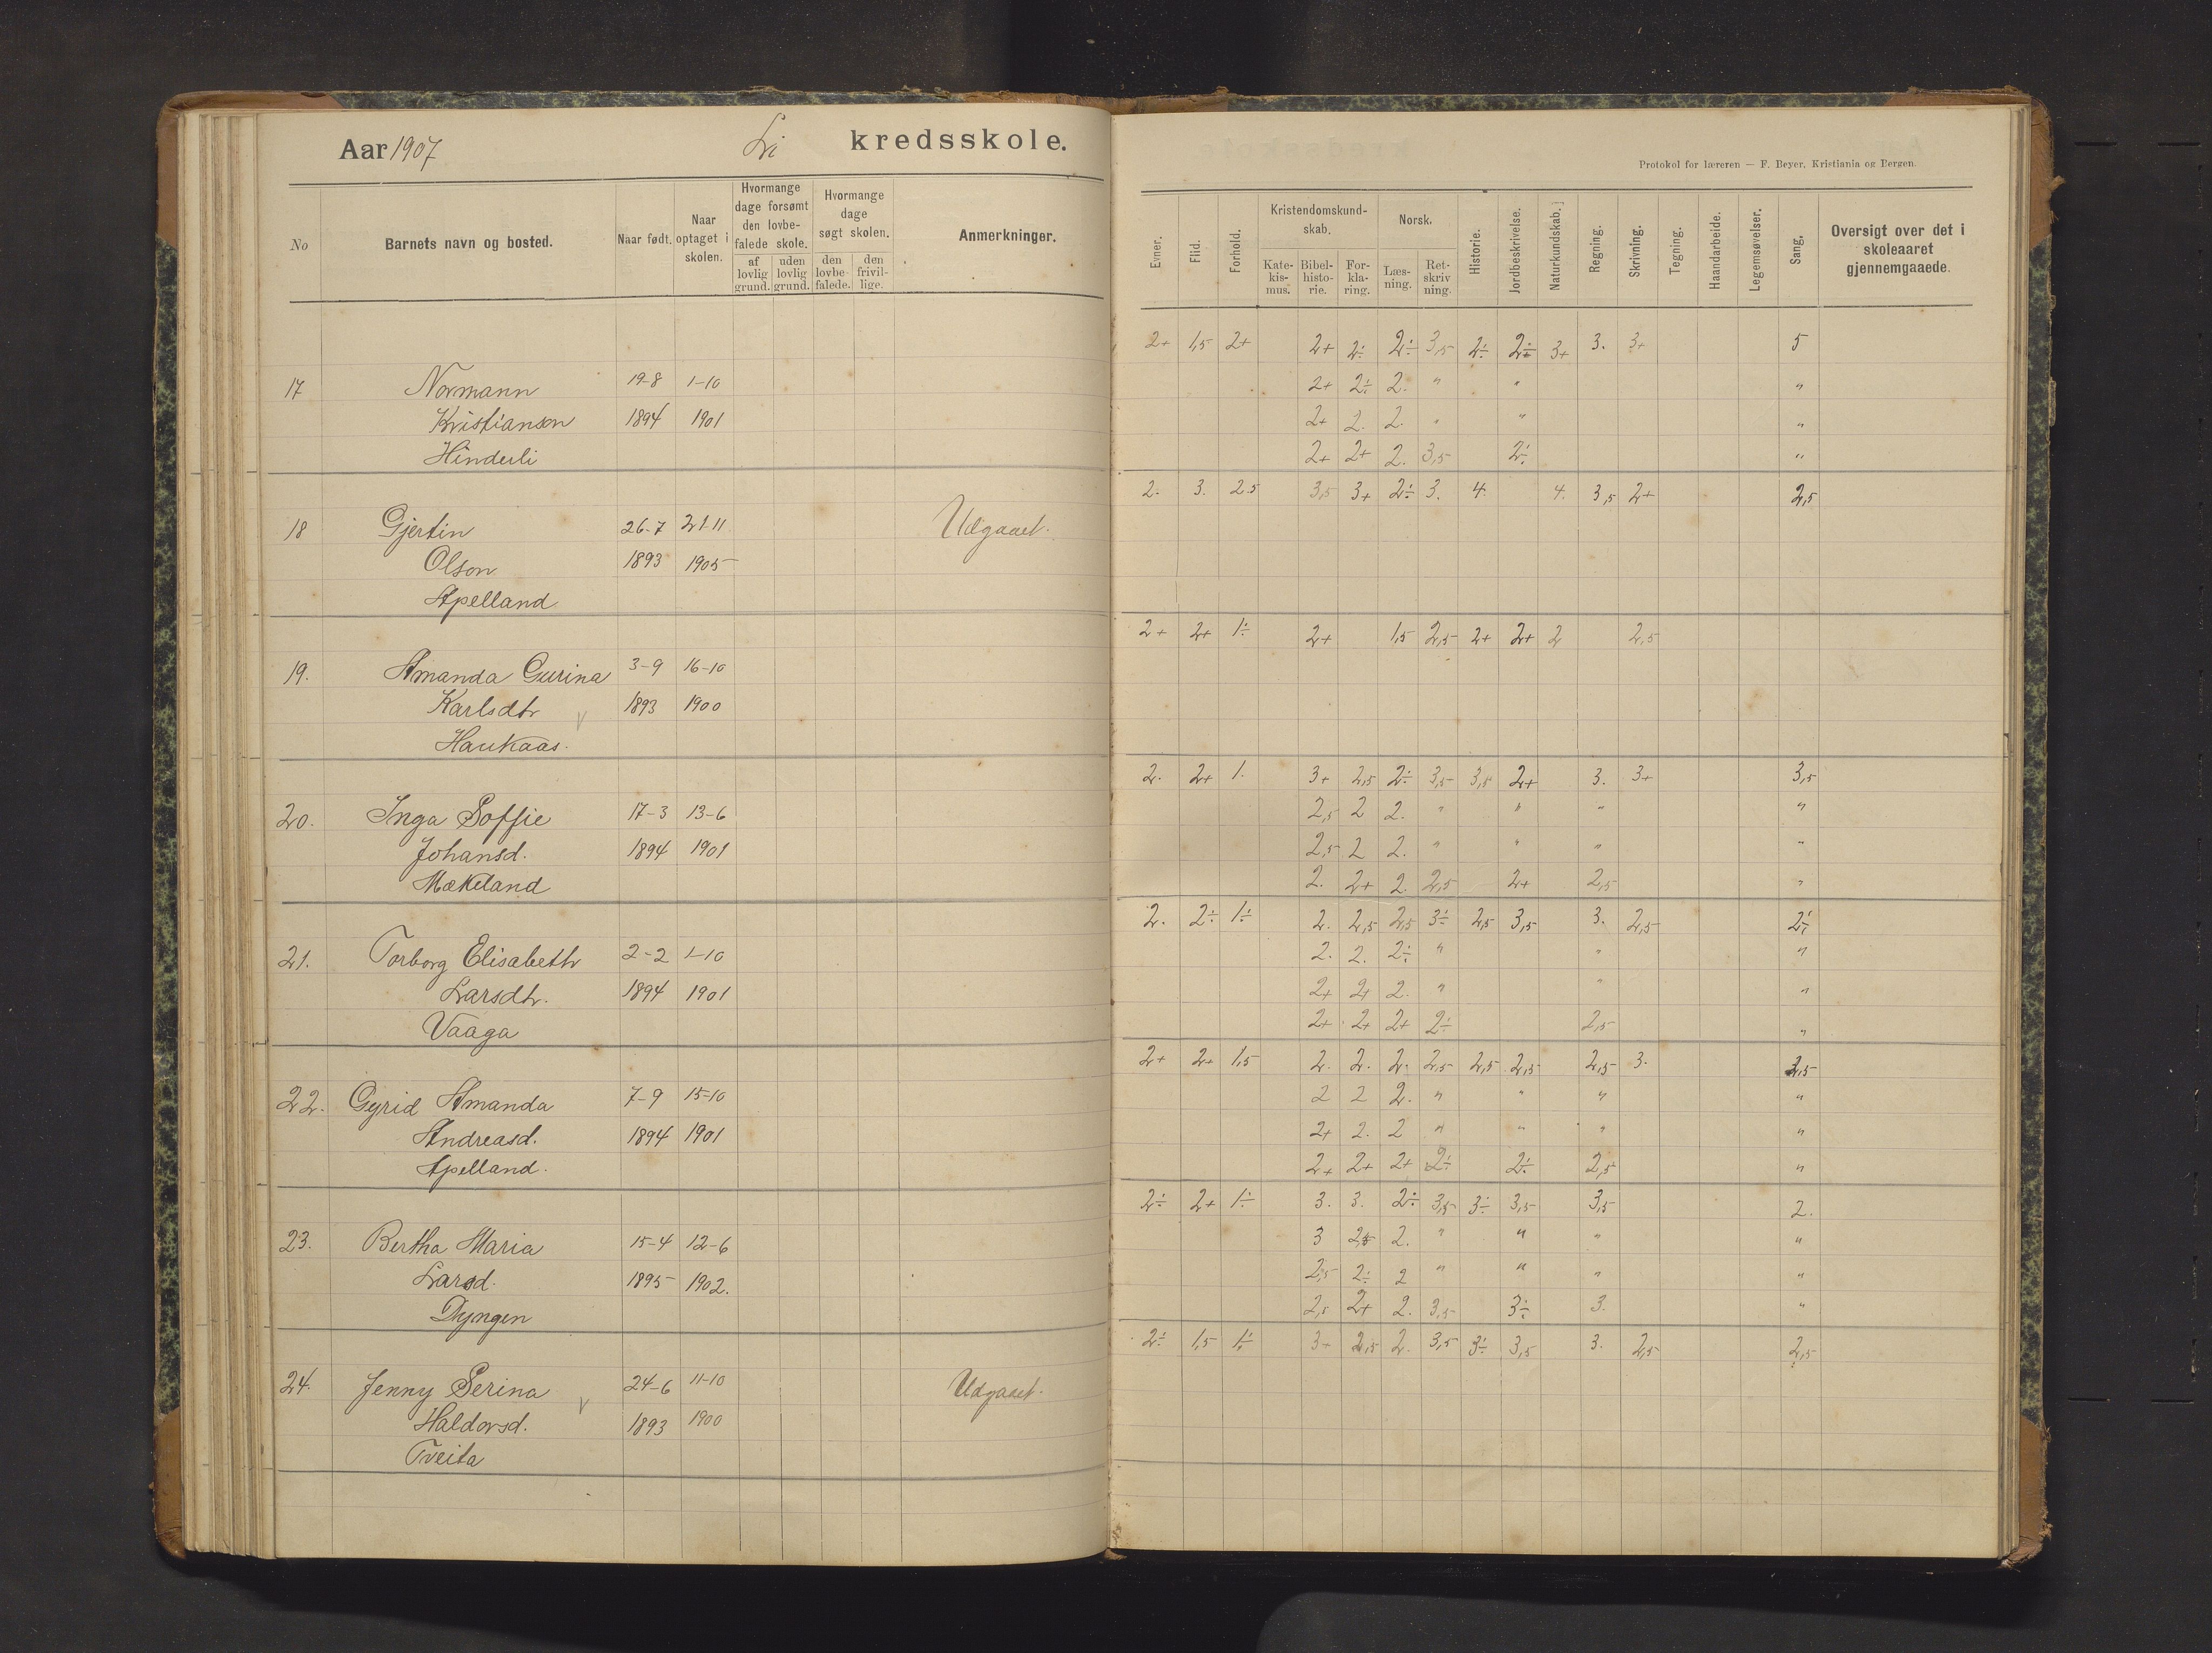 Aar 1907 Li kredsskole.
Protokol for læreren — F. Beyer, Kristiania og Bergen.
No
Barnets navn og bosted.
Naar født.
Naar optaget i skolen.
Hvormange dage forsømt den lovbefalede skole.
af lovlig grund.
uden lovlig grund.
Hvormange dage søgt skolen.
den lovbe- falede.
den frivil- lige.
Anmerkninger.
Evner.
Flid.
Forhold.
Kristendomskund- skab.
Kate- kis- mus.
Bibel- histo- rie.
For- kla- ring.
Norsk.
Læs- ning.
Ret- skriv ning.
Historie.
Jordbeskrivelse.
Naturkundskab.
Regning.
Skrivning.
Tegning.
Haandarbeide.
Legemsøvelser.
Sang.
Oversigt over det i skoleaaret gjennemgaaede.
2+ 1,5 2+ 2+ 2÷ 2÷ 3,5 2÷ 2÷ 3+ 3. 3+ 5
17 Normann 19-8 1-10 2+ 2÷ 2. " " "
Kristianson 1894 1901 2+ 2. 2. " " "
Hinderli 2+ 2+ 2. 3,5 2÷ "
2. 3. 2.5 3,5 3+ 2÷ 3. 4. 4. 3,5 2+ 2,5
18 Gjertin 26-7 21-11 Udgaaet.
Olson 1893 1905
Apelland
2+ 2+ 1÷ 2+ 1,5 2,5 2+ 2+ 2 2,5
19. Amanda Gurina 3-9 16-10
Karlsdtr 1893 1900
Haukaas.
2. 2+ 1. 3+ 2,5 2÷ 3,5 3,5 2+ 3. 3+ 3,5
20. Inga Soffie 17-3 13-6 2,5 2 2. " " " "
Johansd. 1894 1901 2,5 2 2. " " " "
Mækeland 2. 2+ 2. 2,5 2+ 2,5 "
2. 2÷ 1÷ 2. 2,5 2,5 3÷ 2,5 3,5 3. 2,5 2÷
21. Torborg Elisabeth 2-2 1-10 2. 2. 2÷ " " "
Larsdtr. 1894 1901 2+ 2+ 2. " " "
Vaaga 2+ 2+ 2+ 2÷ 2,5 "
2+ 2+ 1,5 2. 2. 2. 2,5 2,5 2,5 2,5 3. 2,5
22. Gyrid Amanda 7-9 15-10 2 2 2. " " " "
Andreasd. 1894 1901 2+ 2. 2 " " " "
Apelland. 2+ 2+ 2+ 2÷ 2÷ 2,5 "
2÷ 2+ 1÷ 3. 3. 2÷ 3,5 3÷ 3,5 3,5 2.
23. Bertha Maria 15-4 12-6 3 2,5 2. " " " "
Larsd. 1895 1902. 2,5 2÷ 2 " " " "
Dyngen 2,5 2+ 2. 3,5 3÷ 3. "
2÷ 1,5 1÷ 3+ 2,5 2. 3,5 3÷ 3,5 3. 2,5 2,5
24. Jenny Serina 24-6 11-10 Udgaaet.
Haldorsd. 1893 1900
Tveita